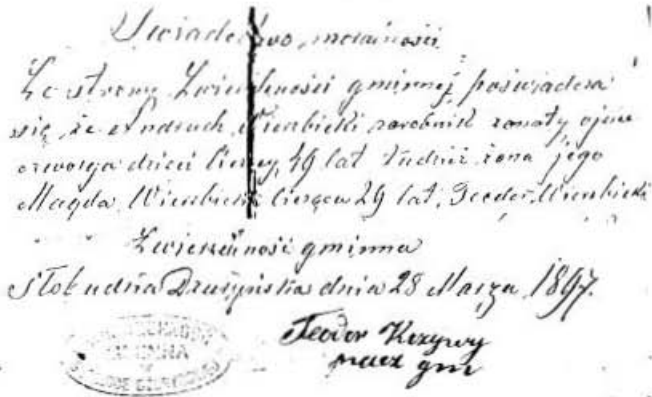 Świadectwo moralności
Ze strony Zwierzchności gminnej poświadcza
się, że Andruch Wierzbicki zarobnik żonaty ojciec
czworga dzieci liczący 49 lat tudzież żona jego
Magda Wierzbicka licząca 29 lat, Teodor Wierzbicki
Zwierzchność gminna
dnia 28 Marza 1897.
Teodor Krzywy
nacz gm
GMINNA